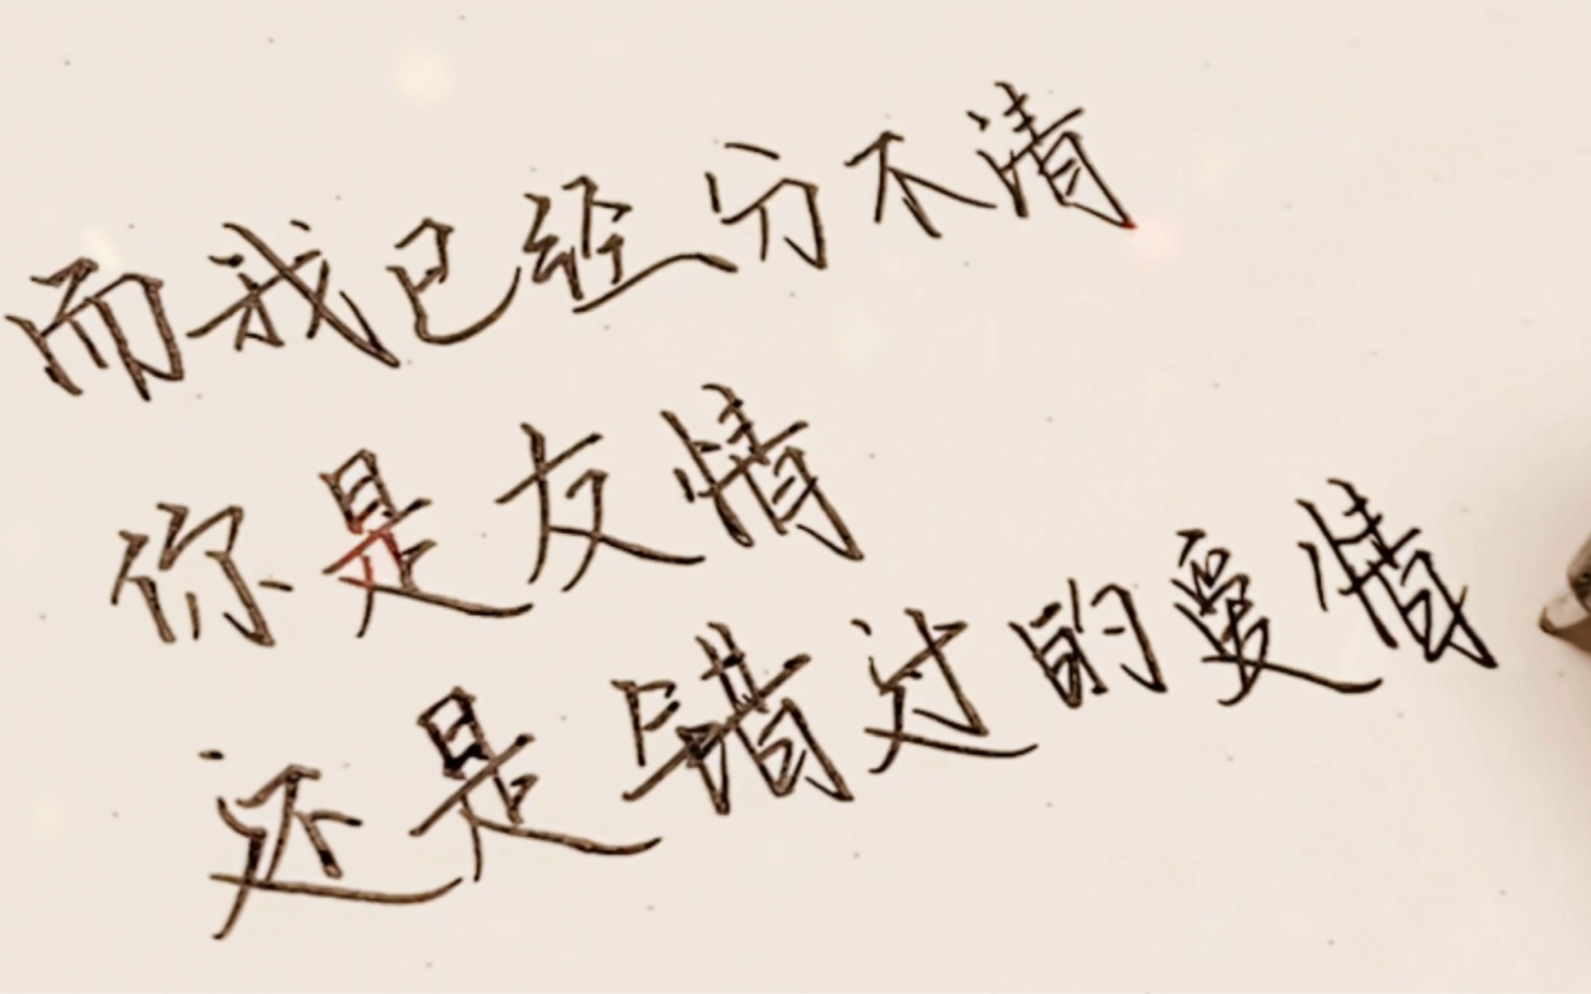 而我已经分不清
你是友情
还是错过的爱情